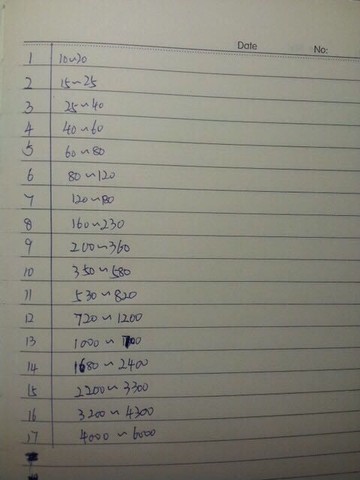 Date No:
1 10~20
2 15~25
3 25~40
4 40~60
5 60~80
6 80~120
7 120~180
8 160~230
9 200~360
10 350~580
11 530~820
12 720~1200
13 1000~1700
14 1680~2400
15 2200~3300
16 3200~4300
17 4000~6000